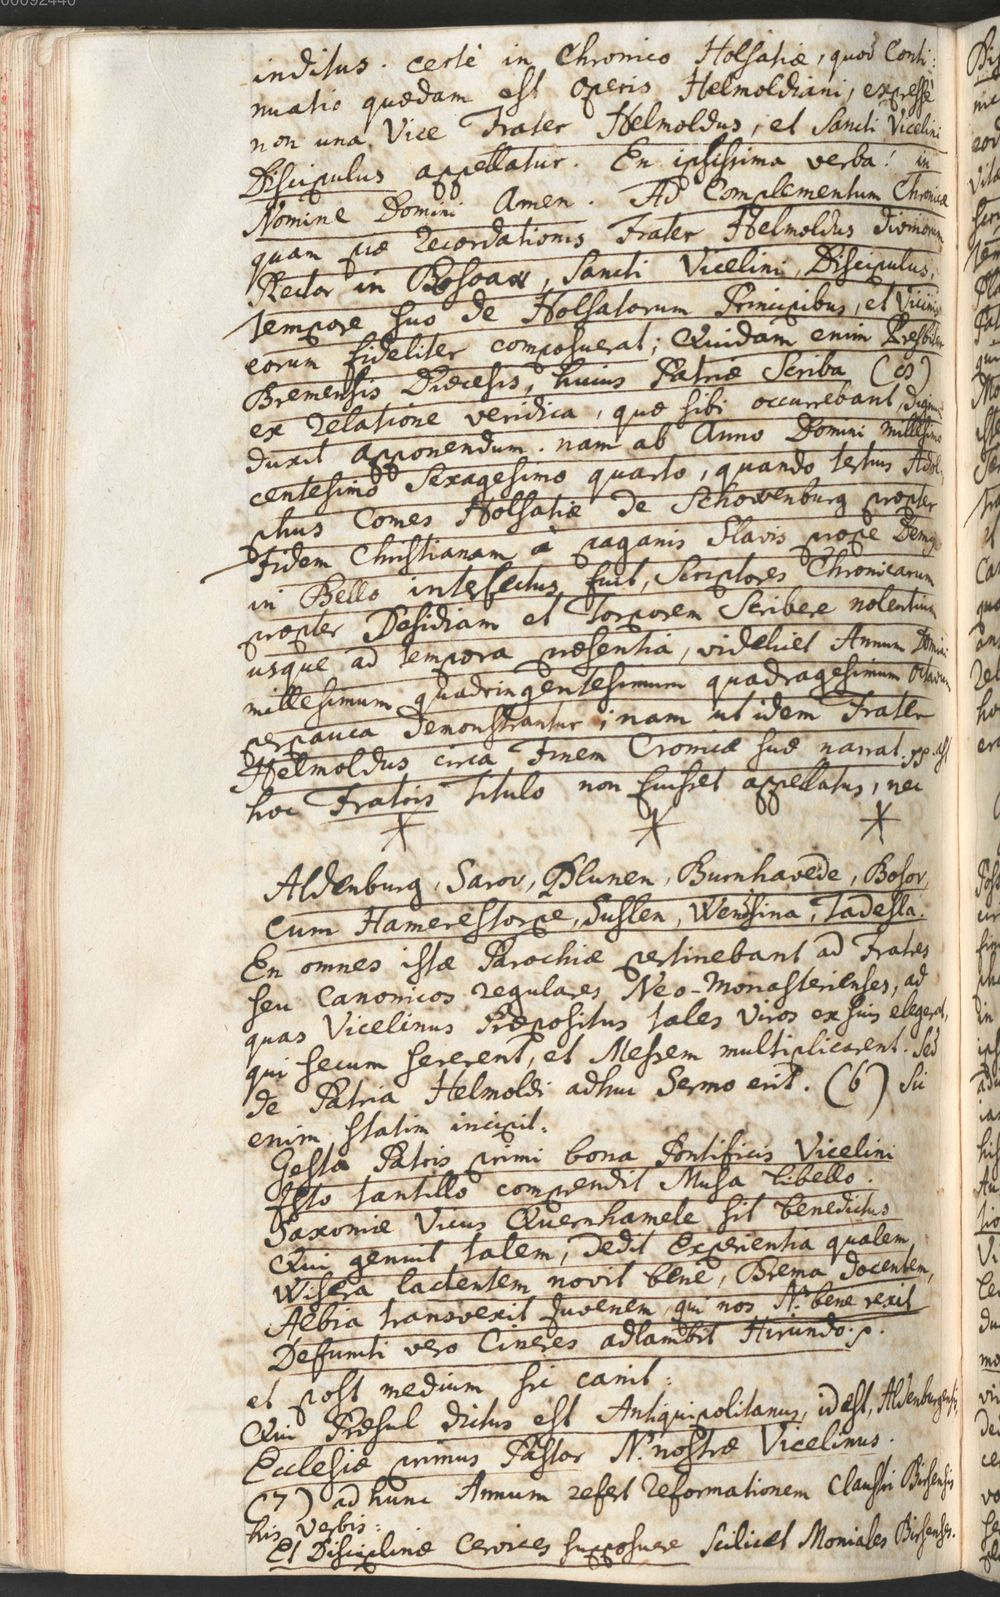 00092440
inditus. certè in Chronico Holsatiæ, quod Conti:
nuatio quædam est Operis Helmoldiani, expressè
non una Vice Frater Helmoldus, et Sancti Vicelini
Discipulus appellatur. En ipsissima verba: in
Nomine Domini Amen. Ad Complementum Chronicæ
quam piæ Recordationis Frater Helmoldus
Rector in Bosoa, Sancti Vicelini Discipulus,
tempore suo de Holsatorum Principibus, et
eorum fideliter composuerat; Quidam enim Presbiter
Bremensis Diœcesis, huius Patriæ Scriba
ex relatione veridica, quæ sibi occurrebant,
duxit apponendum. nam ab Anno Domini millesimo
centesimo Sexagesimo quarto, quando tertius Adol,
phus Comes Holsatiæ de Schowenburg propter
Fidem Christianam à paganis Slavis prope
in Bello interfectus fuit, Scriptores Chronicarum
propter Desidiam et Torporem Scribere nolentium
usque ad tempora præsentia, videlicet Annum Domini
millesimum quadringentesimum quadragesimum Octavum
perpauca demonstrantur; nam ut idem Frater
Helmoldus circa Finem Cronicæ suæ narrat. pp. ast
hoc Fratris titulo non fuisset appellatus, nec
Aldenburg, Sarov, Plunen, Burnhavede, Bosov,
cum Hamerestorpe, Susten, Wensina, Tadesla.
En omnes istæ Parochiæ pertinebant ad Fratres
seu Canonicos regulares Neo-Monasterienses, ad
quas Vicelinus Præpositus tales viros ex suis elegerat,
qui secum sererent, et Messem multiplicarent. Sed
de Patria Helmoldi adhuc Sermo erit. (6) Sic
enim statim incipit:
Gesta Patris primi bona Pontificis Vicelini
Isto tantillo comprendit Musa libello.
Saxoniæ Vicus Quernhamele sit benedictus
Qui genuit talem, dedit Experientia qualem,
Wisera lactentem novit bene, Brema docentem,
Albia transvexit Juvenem, qui nos N.º bene rexit
Defuncti vero Cineres adlambit Hirundo. p.
et post medium sic canit:
Qui Præsul dictus est Antiquipolitanus, id est, Aldenburgensis,
Ecclesiæ primus Pastor N.º nostræ Vicelinus.
(7) ad hunc Annum refert Reformationem Claustri Birsensis
his verbis:
Et Disciplinæ Cervices supposuere Scilicet Moniales Birsenses.